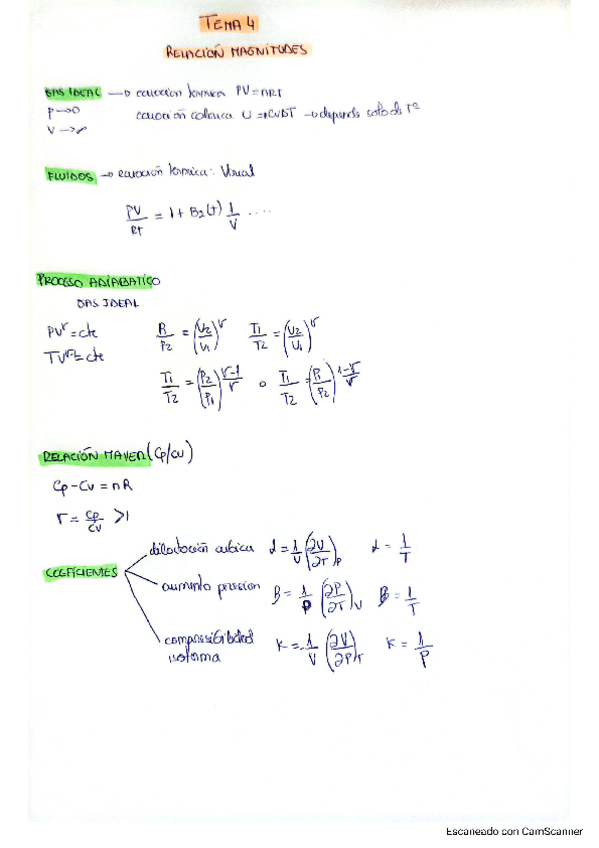 TEMA 4
RELACIÓN MAGNITUDES
GAS IDEAL → ecuación térmica PV=nRT
P→0 ecuación calórica U=nCvΔT → depende solo de Tª
V→∞
FLUIDOS → ecuación térmica: Virial
PV/RT = 1 + B₂(t) 1/V ....
PROCESO ADIABATICO
GAS IDEAL
PVʳ=cte P₁/P₂ = (V₂/V₁)ʳ T₁/T₂ = (V₂/V₁)ʳ
TVʳ⁻¹=cte
T₁/T₂ = (P₂/P₁)^(r-1/r) o T₁/T₂ = (P₁/P₂)^(1-r/r)
RELACIÓN MAYER (Cp/Cv)
Cp-Cv = nR
r = Cp/Cv >1
COEFICIENTES
dilatación cubica α = 1/V (∂V/∂T)P α = 1/T
aumento presion B = 1/P (∂P/∂T)V B = 1/T
compresibilidad isoterma K = -1/V (∂V/∂P)T K = 1/P
Escaneado con CamScanner